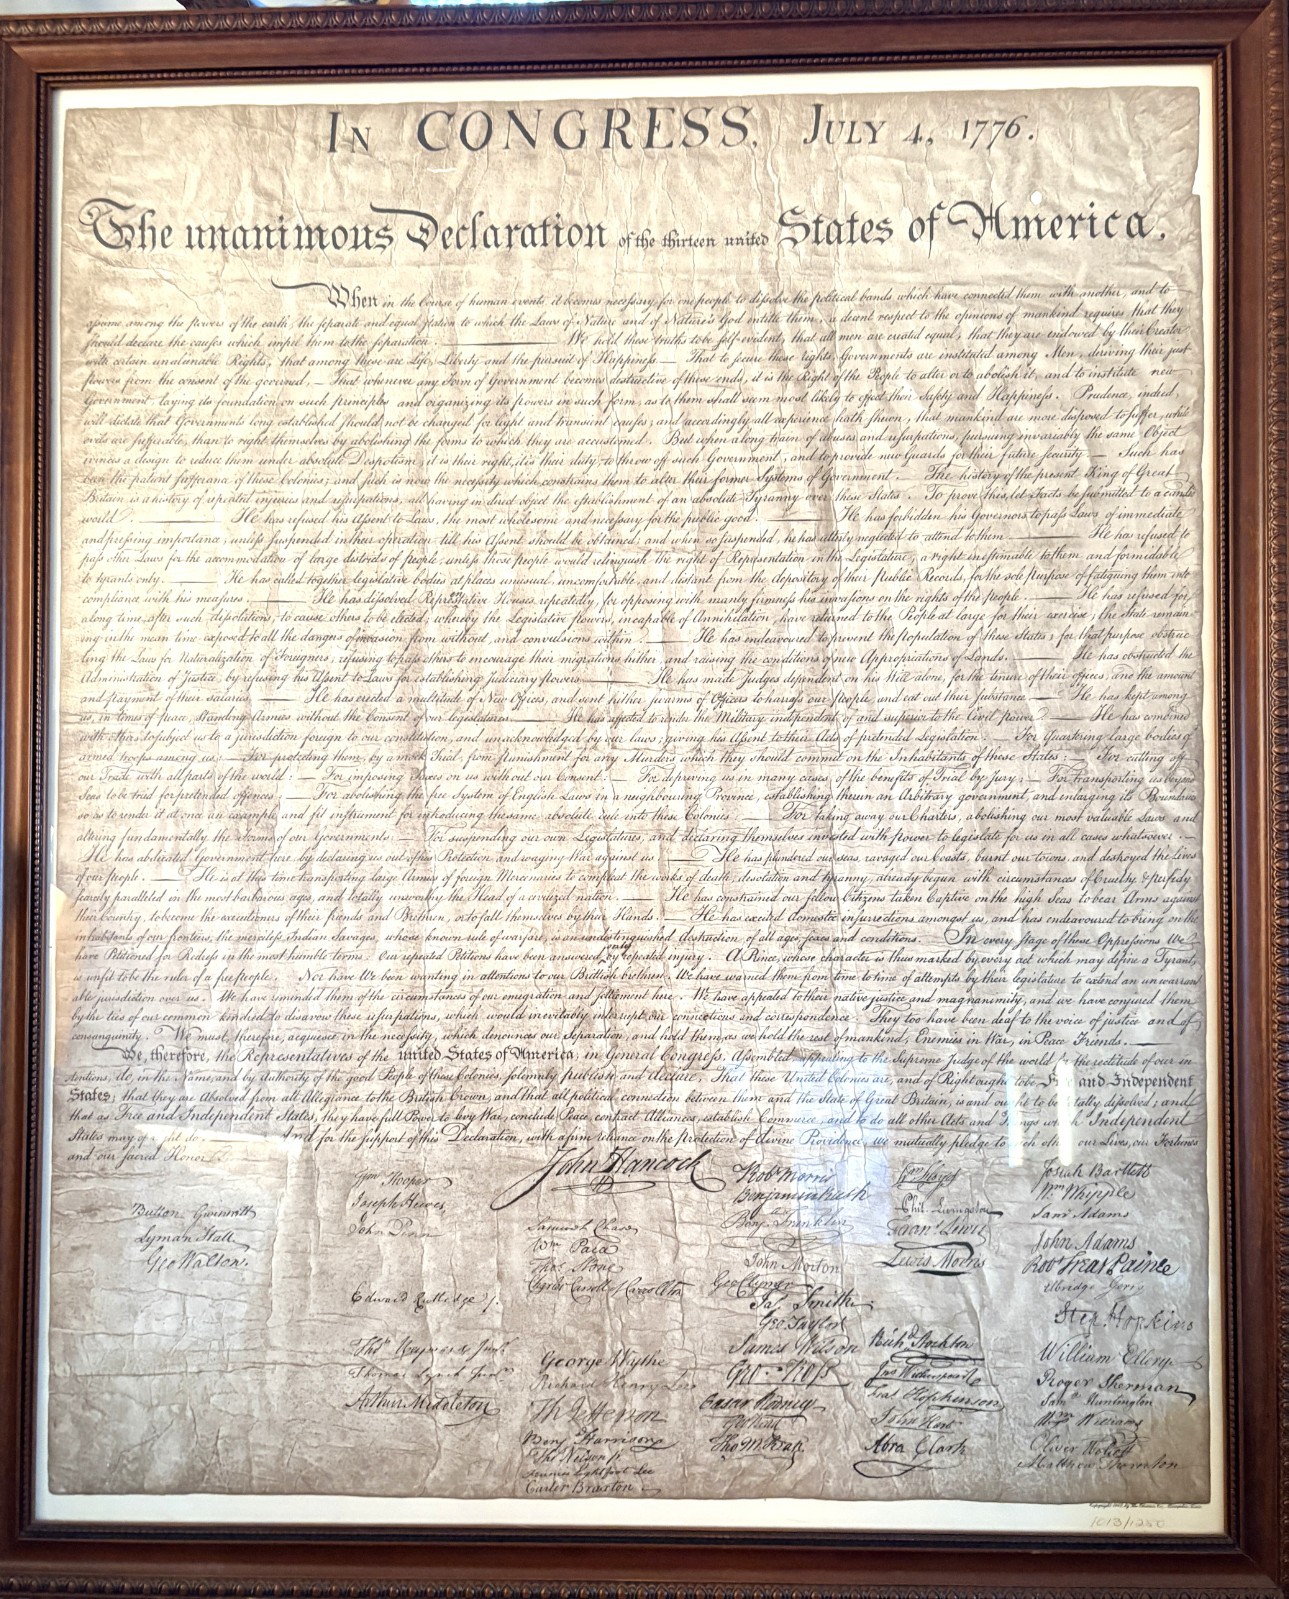 IN CONGRESS, JULY 4, 1776.
The unanimous Declaration of the thirteen united States of America.
When in the Course of human events it becomes necessary for one people to dissolve the political bands which have connected them with another, and to
assume among the powers of the earth, the separate and equal station to which the Laws of Nature and of Nature's God entitle them, a decent respect to the opinions of mankind requires that they
should declare the causes which impel them to the separation. — We hold these truths to be self-evident, that all men are created equal, that they are endowed by their Creator
with certain unalienable Rights, that among these are Life, Liberty and the pursuit of Happiness — That to secure these rights, Governments are instituted among Men, deriving their just
powers from the consent of the governed, — That whenever any Form of Government becomes destructive of these ends, it is the Right of the People to alter or to abolish it, and to institute new
Government, laying its foundation on such principles and organizing its powers in such form, as to them shall seem most likely to effect their Safety and Happiness. Prudence, indeed,
will dictate that Governments long established should not be changed for light and transient causes; and accordingly all experience hath shewn, that mankind are more disposed to suffer, while
evils are sufferable, than to right themselves by abolishing the forms to which they are accustomed. But when a long train of abuses and usurpations, pursuing invariably the same Object
evinces a design to reduce them under absolute Despotism, it is their right, it is their duty, to throw off such Government, and to provide new Guards for their future security. — Such has
been the patient sufferance of these Colonies; and such is now the necessity which constrains them to alter their former Systems of Government. The history of the present King of Great
Britain is a history of repeated injuries and usurpations, all having in direct object the establishment of an absolute Tyranny over these States. To prove this, let Facts be submitted to a candid
world. — He has refused his Assent to Laws, the most wholesome and necessary for the public good. — He has forbidden his Governors to pass Laws of immediate
and pressing importance, unless suspended in their operation till his Assent should be obtained; and when so suspended, he has utterly neglected to attend to them. — He has refused to
pass other Laws for the accommodation of large districts of people, unless those people would relinquish the right of Representation in the Legislature, a right inestimable to them and formidable
to tyrants only. — He has called together legislative bodies at places unusual, uncomfortable, and distant from the depository of their Public Records, for the sole Purpose of fatiguing them into
compliance with his measures. — He has dissolved Representative Houses repeatedly, for opposing with manly firmness his invasions on the rights of the people. — He has refused for
a long time, after such dissolutions, to cause others to be elected; whereby the Legislative powers, incapable of Annihilation, have returned to the People at large for their exercise; the State remain-
ing in the mean time exposed to all the dangers of invasion from without, and convulsions within. — He has endeavoured to prevent the population of these States; for that purpose obstruc-
ting the Laws for Naturalization of Foreigners; refusing to pass others to encourage their migrations hither, and raising the conditions of new Appropriations of Lands. — He has obstructed the
Administration of Justice, by refusing his Assent to Laws for establishing Judiciary powers. — He has made Judges dependent on his Will alone, for the tenure of their offices, and the amount
and payment of their salaries. — He has erected a multitude of New Offices, and sent hither swarms of Officers to harrass our people, and eat out their substance. — He has kept among
us, in times of peace, Standing Armies without the Consent of our legislatures. — He has affected to render the Military independent of and superior to the Civil power. — He has combined
with others to subject us to a jurisdiction foreign to our constitution, and unacknowledged by our laws; giving his Assent to their Acts of pretended Legislation: — For Quartering large bodies of
armed troops among us: — For protecting them, by a mock Trial, from punishment for any Murders which they should commit on the Inhabitants of these States: — For cutting off
our Trade with all parts of the world: — For imposing Taxes on us without our Consent: — For depriving us in many cases, of the benefits of Trial by Jury: — For transporting us beyond
Seas to be tried for pretended offences: — For abolishing the free System of English Laws in a neighbouring Province, establishing therein an Arbitrary government, and enlarging its Boundaries
so as to render it at once an example and fit instrument for introducing the same absolute rule into these Colonies: — For taking away our Charters, abolishing our most valuable Laws and
altering fundamentally the Forms of our Governments: — For suspending our own Legislatures, and declaring themselves invested with power to legislate for us in all cases whatsoever. —
He has abdicated Government here, by declaring us out of his Protection and waging War against us. — He has plundered our seas, ravaged our Coasts, burnt our towns, and destroyed the Lives
of our people. — He is at this time transporting large Armies of foreign Mercenaries to compleat the works of death, desolation and tyranny, already begun with circumstances of Cruelty & perfidy
scarcely paralleled in the most barbarous ages, and totally unworthy the Head of a civilized nation. — He has constrained our fellow Citizens taken Captive on the high Seas to bear Arms against
their Country, to become the executioners of their friends and Brethren, or to fall themselves by their Hands. — He has excited domestic insurrections amongst us, and has endeavoured to bring on the
inhabitants of our frontiers, the merciless Indian Savages, whose known rule of warfare, is an undistinguished destruction of all ages, sexes and conditions. In every stage of these Oppressions We
have Petitioned for Redress in the most humble terms: Our repeated Petitions have been answered only by repeated injury. A Prince, whose character is thus marked by every act which may define a Tyrant,
is unfit to be the ruler of a free people. Nor have We been wanting in attentions to our Brittish brethren. We have warned them from time to time of attempts by their legislature to extend an unwarrant-
able jurisdiction over us. We have reminded them of the circumstances of our emigration and settlement here. We have appealed to their native justice and magnanimity, and we have conjured them
by the ties of our common kindred to disavow these usurpations, which would inevitably interrupt our connections and correspondence. They too have been deaf to the voice of justice and of
consanguinity. We must, therefore, acquiesce in the necessity, which denounces our Separation, and hold them, as we hold the rest of mankind, Enemies in War, in Peace Friends. —
We, therefore, the Representatives of the united States of America, in General Congress, Assembled, appealing to the Supreme Judge of the world for the rectitude of our in-
tentions, do, in the Name, and by Authority of the good People of these Colonies, solemnly publish and declare, That these United Colonies are, and of Right ought to be Free and Independent
States; that they are Absolved from all Allegiance to the British Crown, and that all political connection between them and the State of Great Britain, is and ought to be totally dissolved; and
that as Free and Independent States, they have full Power to levy War, conclude Peace, contract Alliances, establish Commerce, and to do all other Acts and Things which Independent
States may of right do. — And for the support of this Declaration, with a firm reliance on the Protection of divine Providence, we mutually pledge to each other our Lives, our Fortunes
and our sacred Honor.
Button Gwinnett
Lyman Hall
Geo Walton.
Wm Hooper
Joseph Hewes,
John Penn
Edward Rutledge /.
Thos Heyward Junr.
Thomas Lynch Junr.
Arthur Middleton
John Hancock
Samuel Chase
Wm Paca
Thos Stone
Charles Carroll of Carrollton
George Wythe
Richard Henry Lee
Th Jefferson
Benj Harrison
Thos Nelson jr.
Francis Lightfoot Lee
Carter Braxton
Robt Morris
Benjamin Rush
Benj. Franklin
John Morton
Geo Clymer
Jas. Smith
Geo. Taylor
James Wilson
Geo. Ross
Caesar Rodney
Geo Read
Tho M:Kean
Wm Floyd
Phil. Livingston
Frans. Lewis
Lewis Morris
Richd. Stockton
Jno Witherspoon
Fras. Hopkinson
John Hart
Abra Clark
Josiah Bartlett
Wm Whipple
Saml Adams
John Adams
Robt Treat Paine
Elbridge Gerry
Step. Hopkins
William Ellery
Roger Sherman
Sam Huntington
Wm Williams
Oliver Wolcott
Matthew Thornton
1013/1250